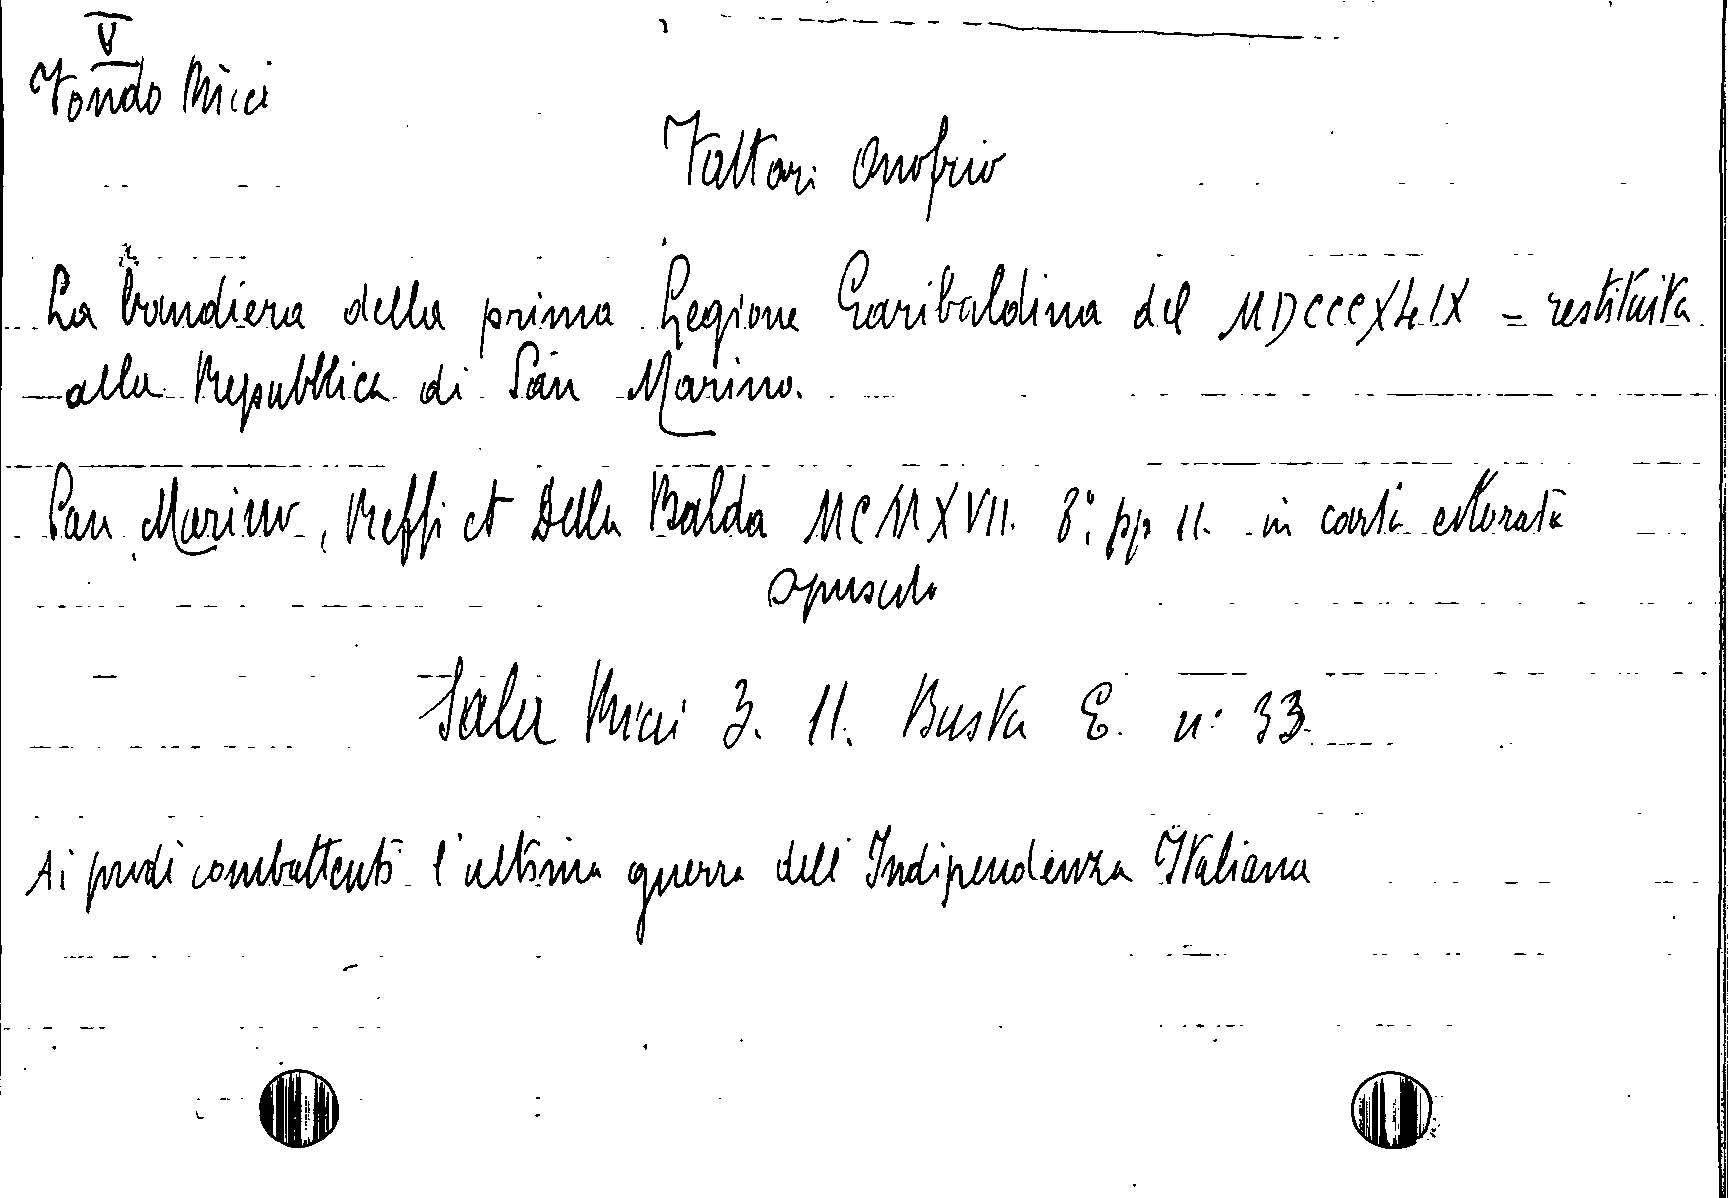 V
Fondo Ricci
Fattori Onofrio
La bandiera della prima Legione Garibaldina del MDCCCXLIX = restituita
alla Repubblica di San Marino.
San Marino, Reffi et Della Balda MCMXVII. 8°. pp 11. in carta colorata
opuscolo
Sala Ricci 3. 11. Busta E. n: 33
Ai prodi combattenti l'ultima guerra dell'Indipendenza Italiana